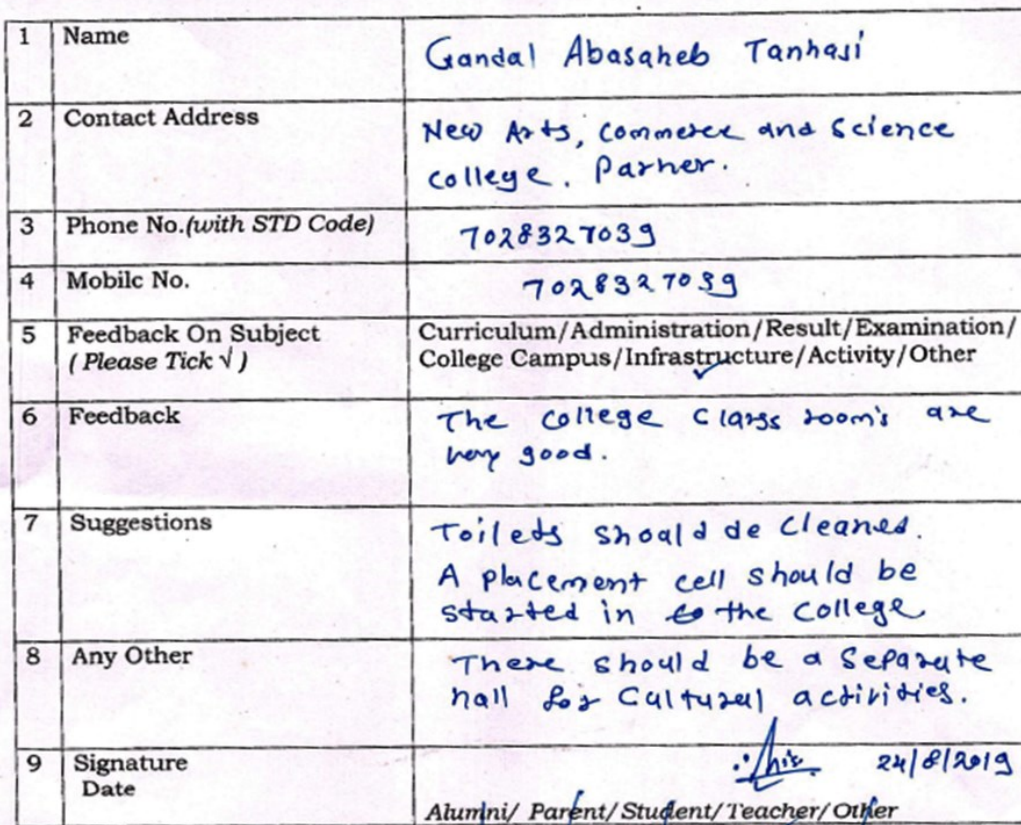 1 Name Gandal Abasaheb Tanhaji
2 Contact Address New Arts, Commerce and Science
college. Parner.
3 Phone No.(with STD Code) 7028327039
4 Mobile No. 7028327039
5 Feedback On Subject Curriculum/Administration/Result/Examination/
( Please Tick √ ) College Campus/Infrastructure/Activity/Other
6 Feedback The College Class room's are
very good.
7 Suggestions Toilets should de Cleaned.
A placement cell should be
started in the College
8 Any Other There should be a Separate
hall for Cultural activities.
9 Signature 24/8/2019
Date
Alumni/ Parent/Student/Teacher/Other